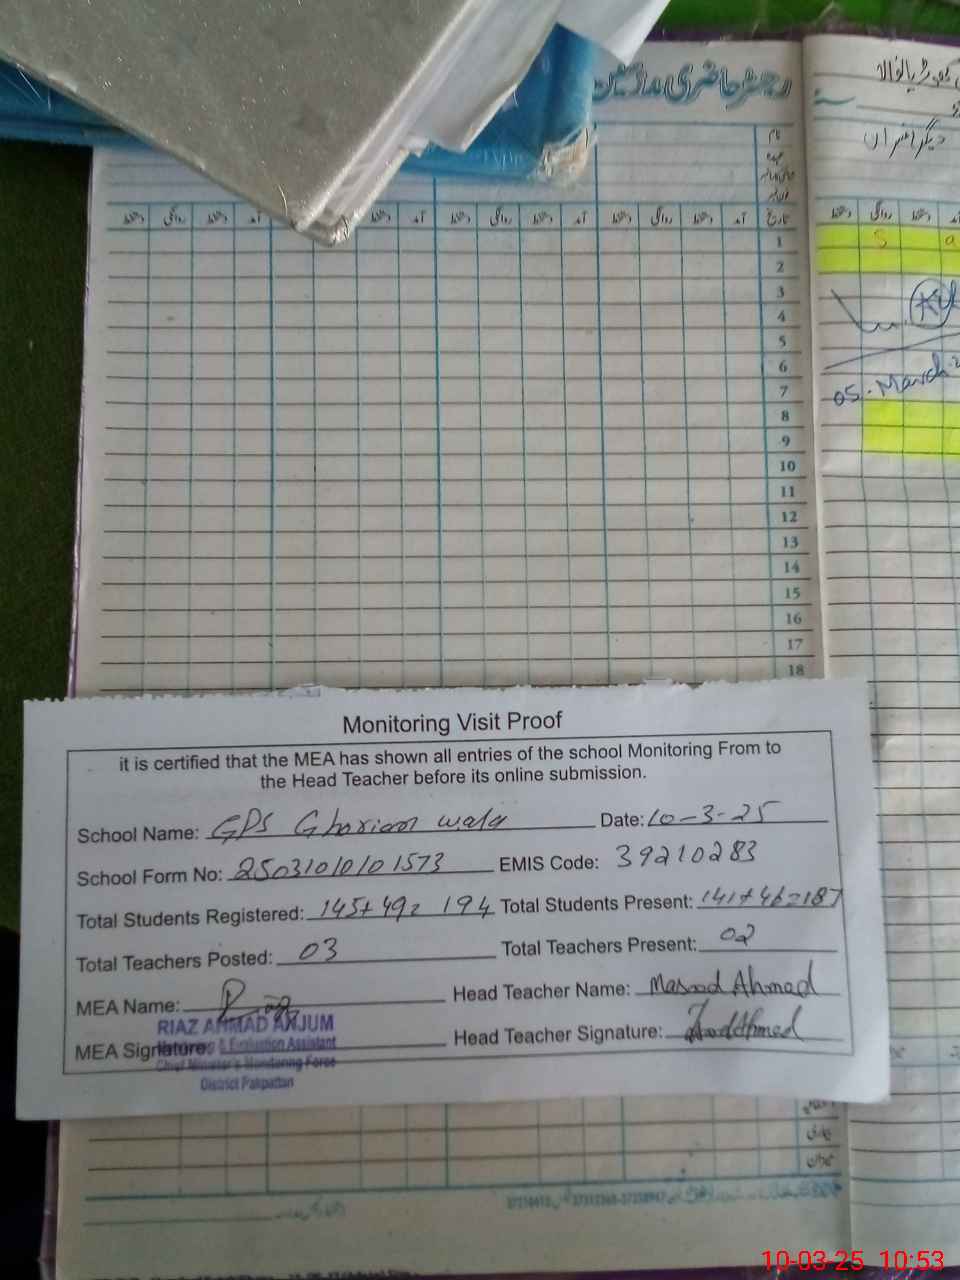 رجسٹر حاضری مدرسین
دیگر افسران
نام
عہدہ
تاریخ آمد دستخط روانگی دستخط آمد دستخط روانگی دستخط آمد دستخط دستخط روانگی دستخط
آمد دستخط روانگی دستخط
1
S a
2
3
4
5
6
7
05. March
8
9
10
11
12
13
14
15
16
17
18
Monitoring Visit Proof
it is certified that the MEA has shown all entries of the school Monitoring From to
the Head Teacher before its online submission.
School Name: GPS Gharian wala Date: 10-3-25
School Form No: 25031010101573 EMIS Code: 39210283
Total Students Registered: 145+49= 194 Total Students Present: 141+46=187
Total Teachers Posted: 03 Total Teachers Present: 02
MEA Name: Head Teacher Name: Masood Ahmad
RIAZ AHMAD ANJUM
MEA Signature: Head Teacher Signature:
& Evaluation Assistant
Chief Minister's Monitoring Force
District Pakpattan
10-03-25 10:53